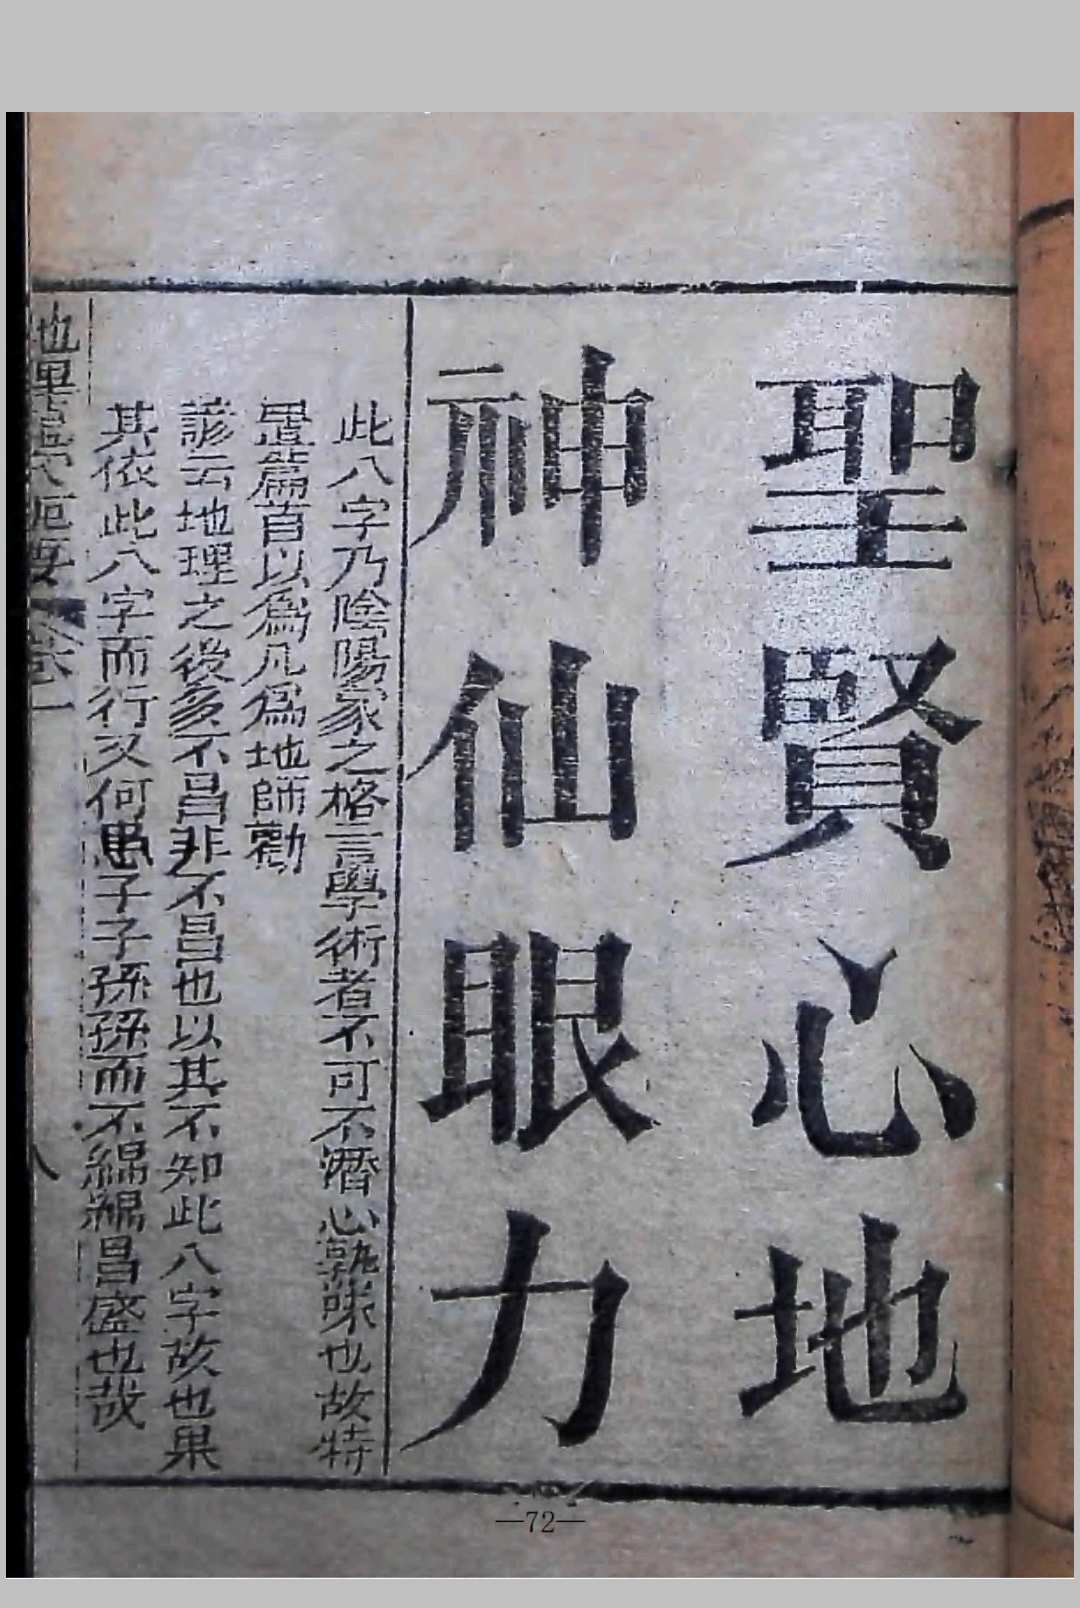 聖賢心地
神仙眼力
此八字乃陰陽家之格言學術者不可不潛心熟味也故特
置篇首以爲凡爲地師勸
諺云地理之後多不昌非不昌也以其不知此八字故也果
其依此八字而行又何患子子孫孫而不綿綿昌盛也哉
地理 穴 要 卷一
八
—72—